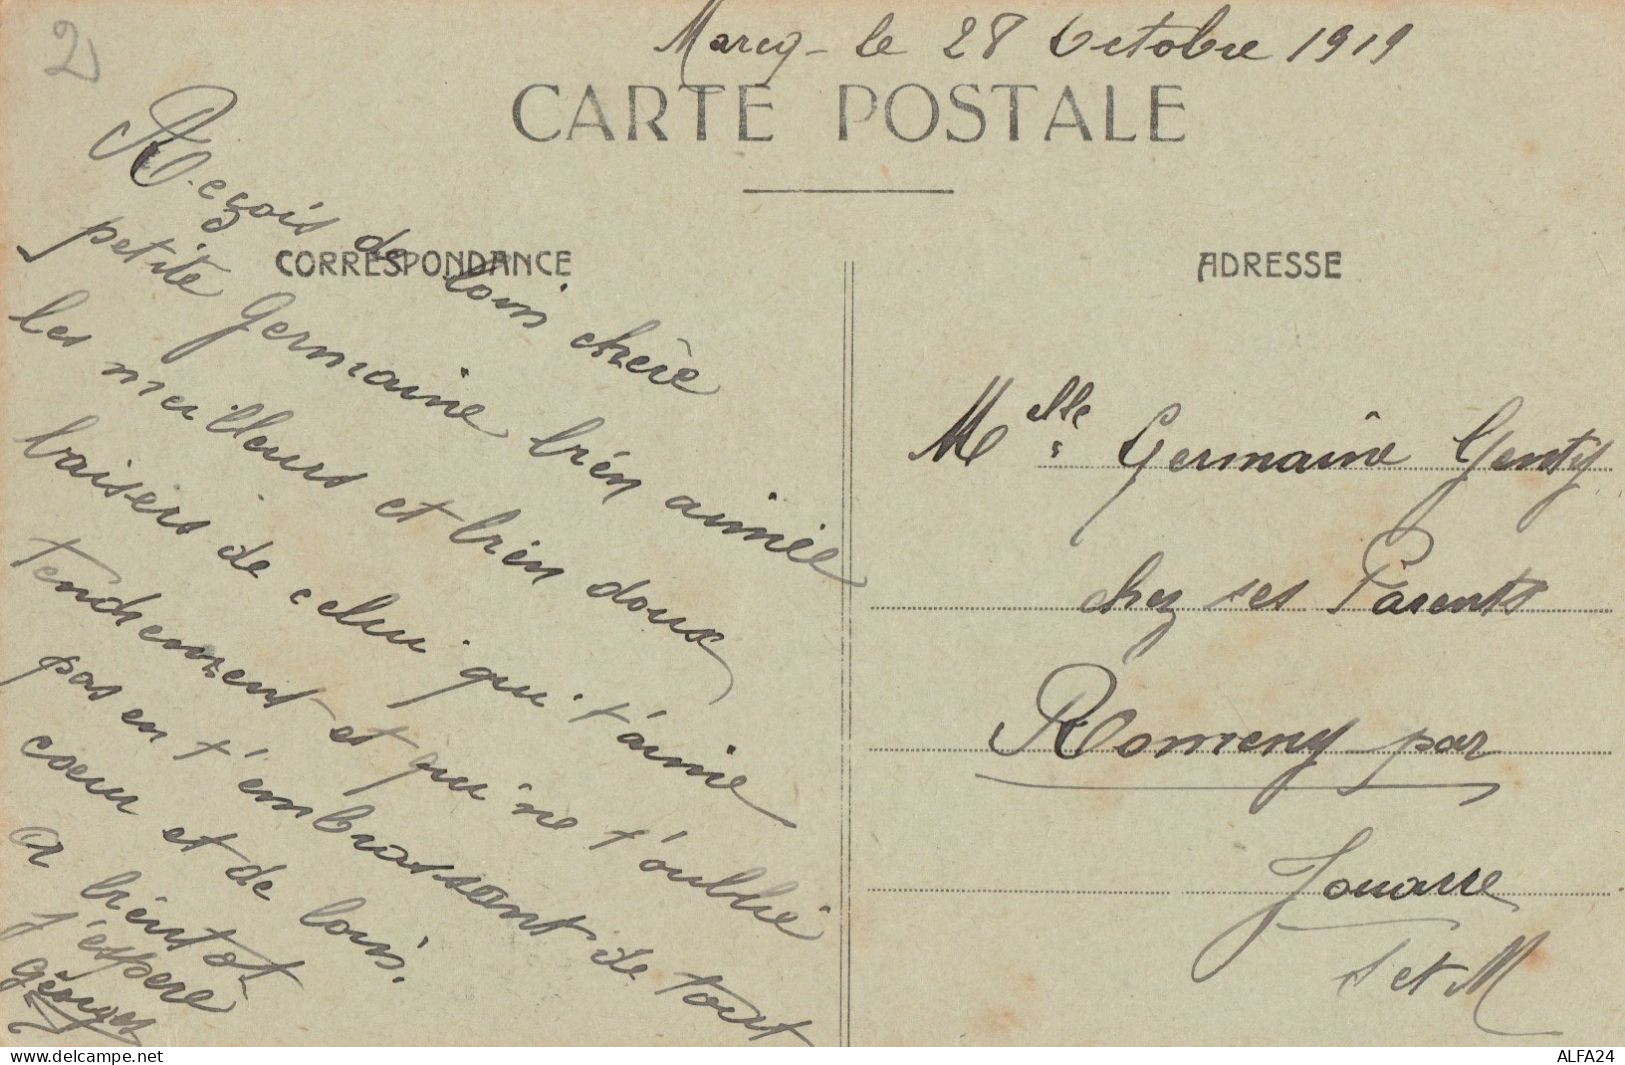 2
Marcq - le 28 Octobre 1919
CARTE POSTALE
CORRESPONDANCE
Reçois de loin chère
petite Germaine bien aimée
les meilleurs et bien doux
baisers de celui qui t'aime
tendrement et qui ne t'oublie
pas en t'embrassant de tout
cœur et de loin.
A bientot
j'espere
Georges
ADRESSE
Melle Germaine Genty
chez ses Parents
Romeny par
Jouarre
S et M
delcampe.net
ALFA24